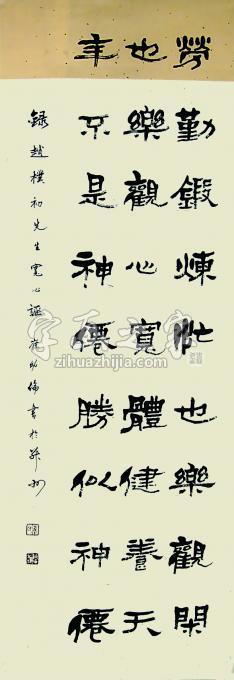 勞勤鍛煉忙也樂觀閑
也樂觀心寬體健養天
年不是神僊勝似神僊
錄趙樸初先生寬心謳 幼倫書於
字画之家
zihuazhijia.com